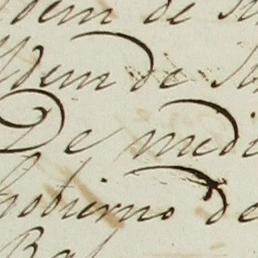 Idem de
Idem de
De medi
Gobierno de